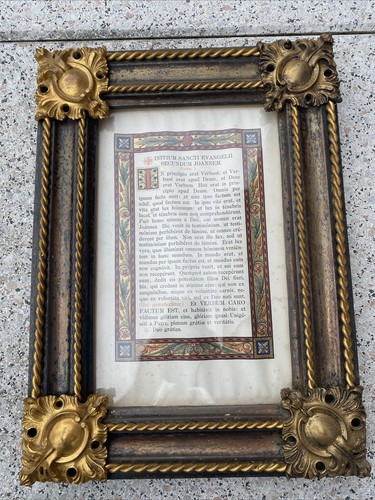 INITIUM SANCTI EVANGELII
SECUNDUM JOANNEM.
IN principio erat Verbum, et Ver-
bum erat apud Deum, et Deus
erat Verbum. Hoc erat in prin-
cipio apud Deum. Omnia per
ipsum facta sunt: et sine ipso factum est
nihil, quod factum est. In ipso vita erat, et
vita erat lux hominum: et lux in tenebris
lucet, et tenebræ eam non comprehendérunt.
Fuit homo missus a Deo, cui nomen erat
Joánnes. Hic venit in testimónium, ut testi-
mónium perhibéret de lúmine, ut omnes cré-
derent per illum. Non erat ille lux, sed ut
testimónium perhibéret de lúmine. Erat lux
vera, quæ illúminat omnem hóminem venién-
tem in hunc mundum. In mundo erat, et
mundus per ipsum factus est, et mundus eum
non cognóvit. In própria venit, et sui eum
non recepérunt. Quotquot autem recepérunt
eum, dedit eis potestátem fílios Dei fíeri,
his, qui credunt in nómine ejus: qui non ex
sanguínibus, neque ex voluntáte carnis, ne-
que ex voluntáte viri, sed ex Deo nati sunt.
Et VERBUM CARO
FACTUM EST, et habitávit in nobis: et
vídimus glóriam ejus, glóriam quasi Unigé-
niti a Patre, plenum grátiæ et veritátis.
Deo grátias.